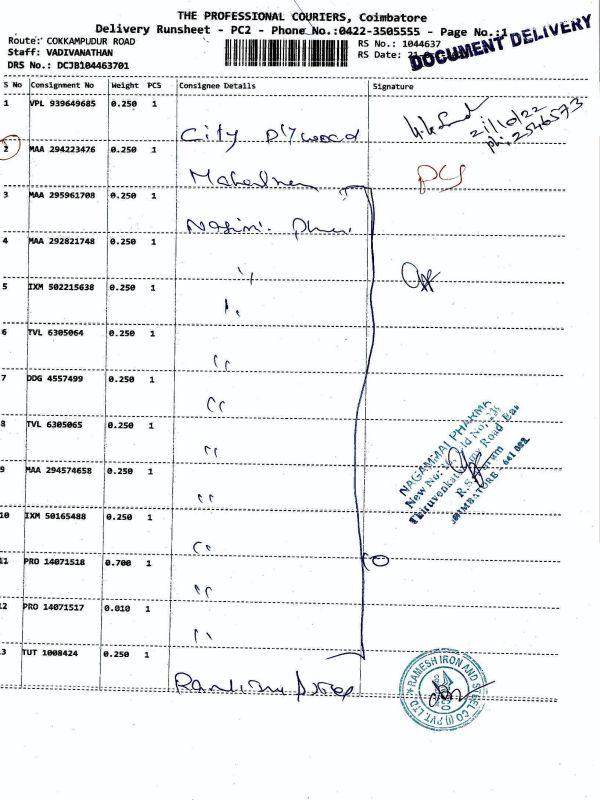 THE PROFESSIONAL COURIERS, Coimbatore
Delivery Runsheet - PC2 - Phone No.:0422-3505555 - Page No.:1
DOCUMENT DELIVERY
Route: COKKAMPUDUR ROAD
RS No.: 1044637
Staff: VADIVANATHAN
RS Date:
DRS No.: DCJB104463701
S No Consignment No Weight PCS Consignee Details Signature
1 VPL 939649685 0.250 1
City Plywood
21/10/22
ph: 2546573
2 MAA 294223476 0.250 1
3 MAA 295961708 0.250 1
4 MAA 292821748 0.250 1
"
5 IXM 502215638 0.250 1
"
6 TVL 6305064 0.250 1
"
7 DDG 4557499 0.250 1
"
8 TVL 6305065 0.250 1
"
9 MAA 294574658 0.250 1
"
10 IXM 50165488 0.250 1
"
11 PRO 14071518 0.700 1
10
"
12 PRO 14071517 0.010 1
"
13 TUT 1008424 0.250 1
NAGAMMAI PHARMA
New No: Old No:
Road
R.S. Puram
COIMBATORE - 641 002.
RAMESH IRON AND STEEL CO (I) PVT. LTD